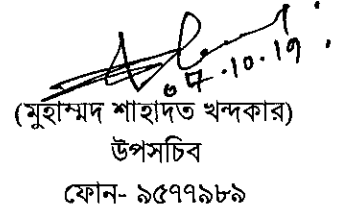 ০৭.১০.১৭
(মুহাম্মদ শাহাদত খন্দকার)
উপসচিব
ফোন- ৯৫৭৭৯৮৯